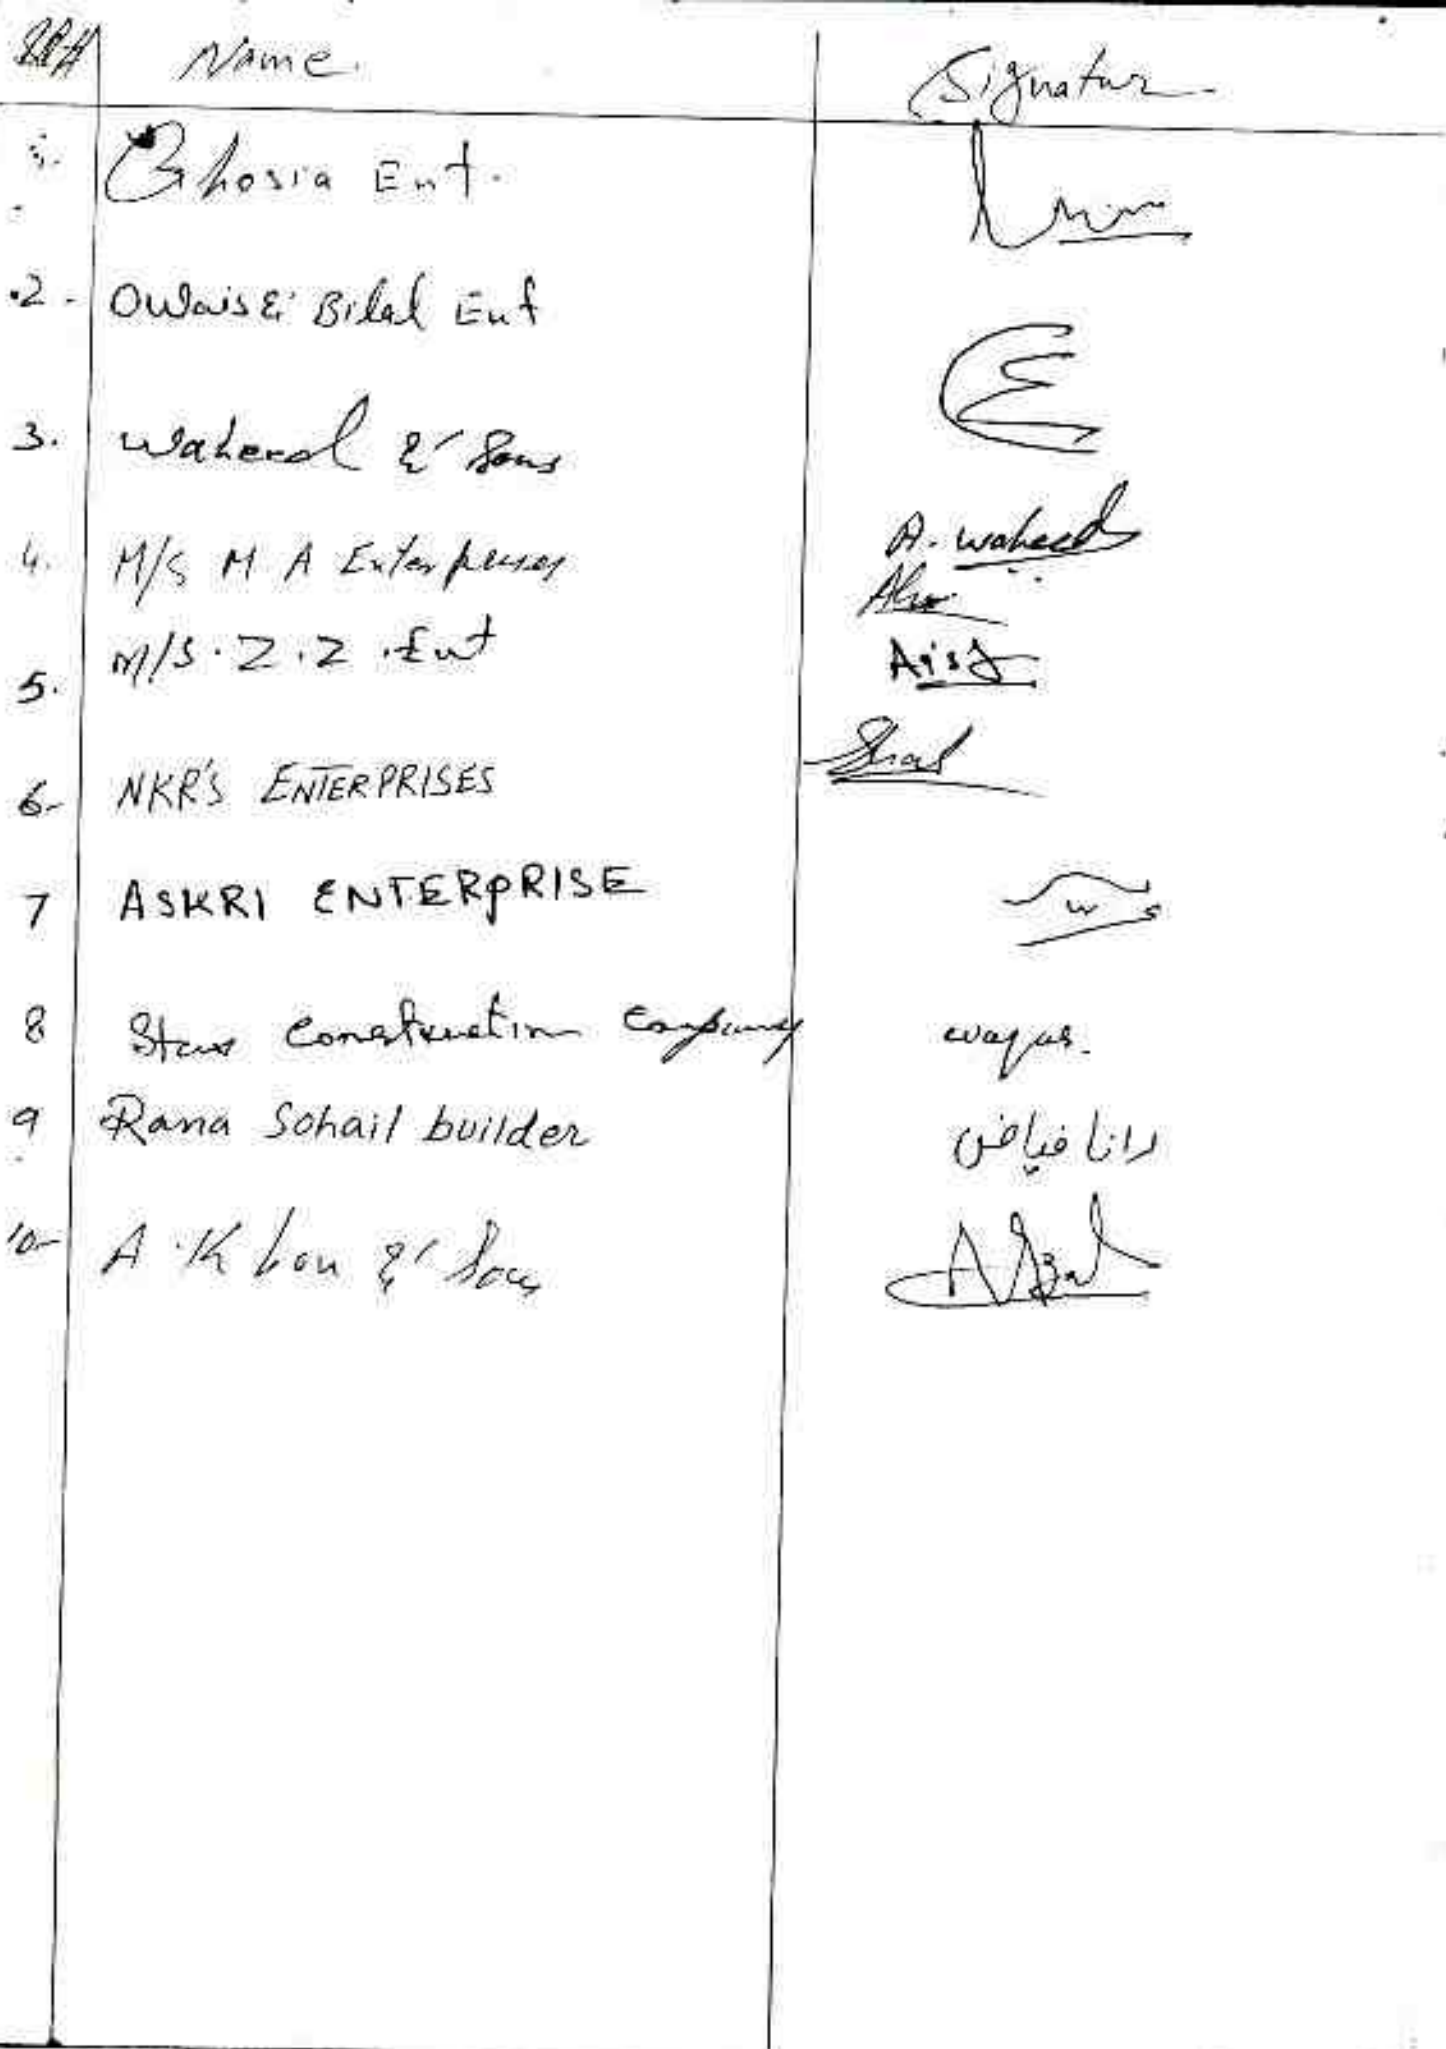 Name. Signatur
1. Ghosia Ent.
2. Owais & Bilal Ent
3. Waheed & Sons
A. waheed
4. M/S M A Enterprises
M/S. Z.Z. Ent
5.
6- NKR'S ENTERPRISES
7 ASKRI ENTERPRISE
8 Star Construction Company waqas.
9 Rana Sohail builder رانا فیاض
10- A. Khan & Sons Afzal